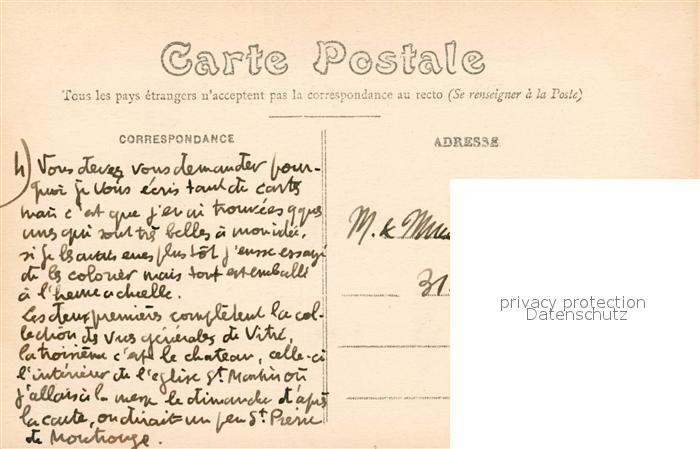 Carte Postale
Tous les pays étrangers n'acceptent pas la correspondance au recto (Se renseigner à la Poste)
CORRESPONDANCE
ADRESSE
4) Vous devez vous demander pour-
quoi je vous écris tant de cartes
mais c'est que j'en ai trouvées qques
unes qui sont très belles à mon idée,
si je les avais eues plus tôt j'eusse essayé
de les colorier mais tout est emballé
à l'heure actuelle.
Les deux premières complètent la col-
lection des vues générales de Vitré,
la troisième c'est le chateau, celle-ci
l'intérieur de l'église St. Martin où
j'allais à la messe le dimanche d'après
la carte, on dirait un peu St. Pierre
de Montrouge.
M. &
31
privacy protection
Datenschutz